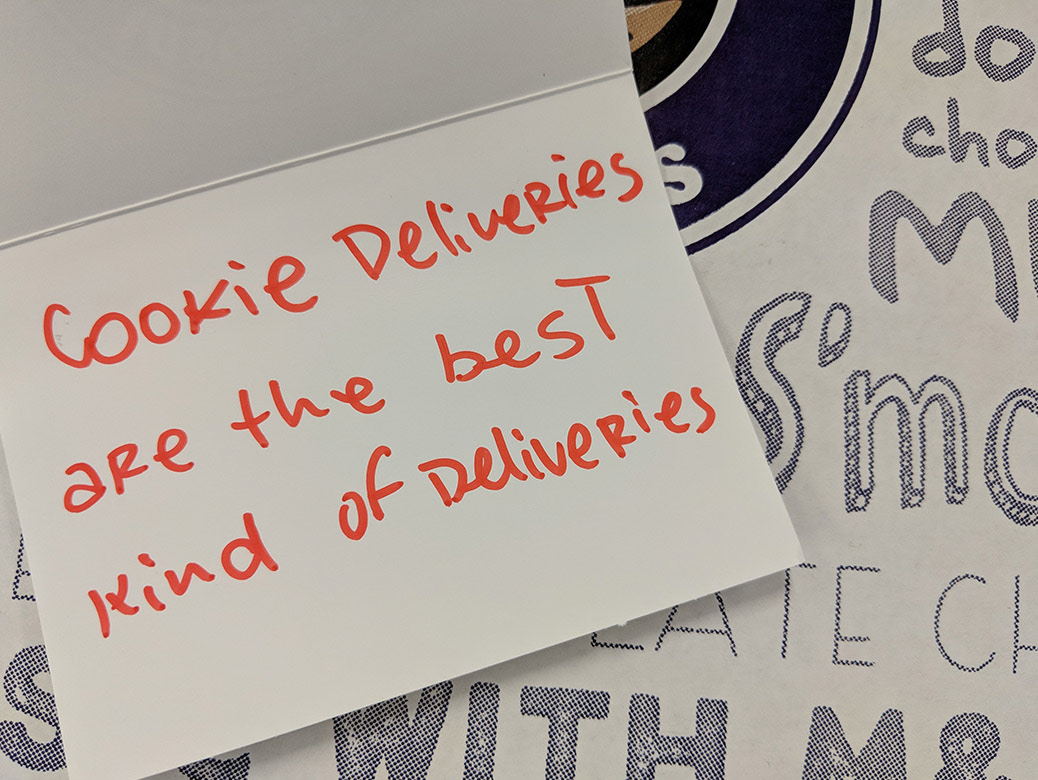 Cookie Deliveries
are the best
kind of Deliveries
s
do
cho
M
S'mo
LATE CH
WITH M&